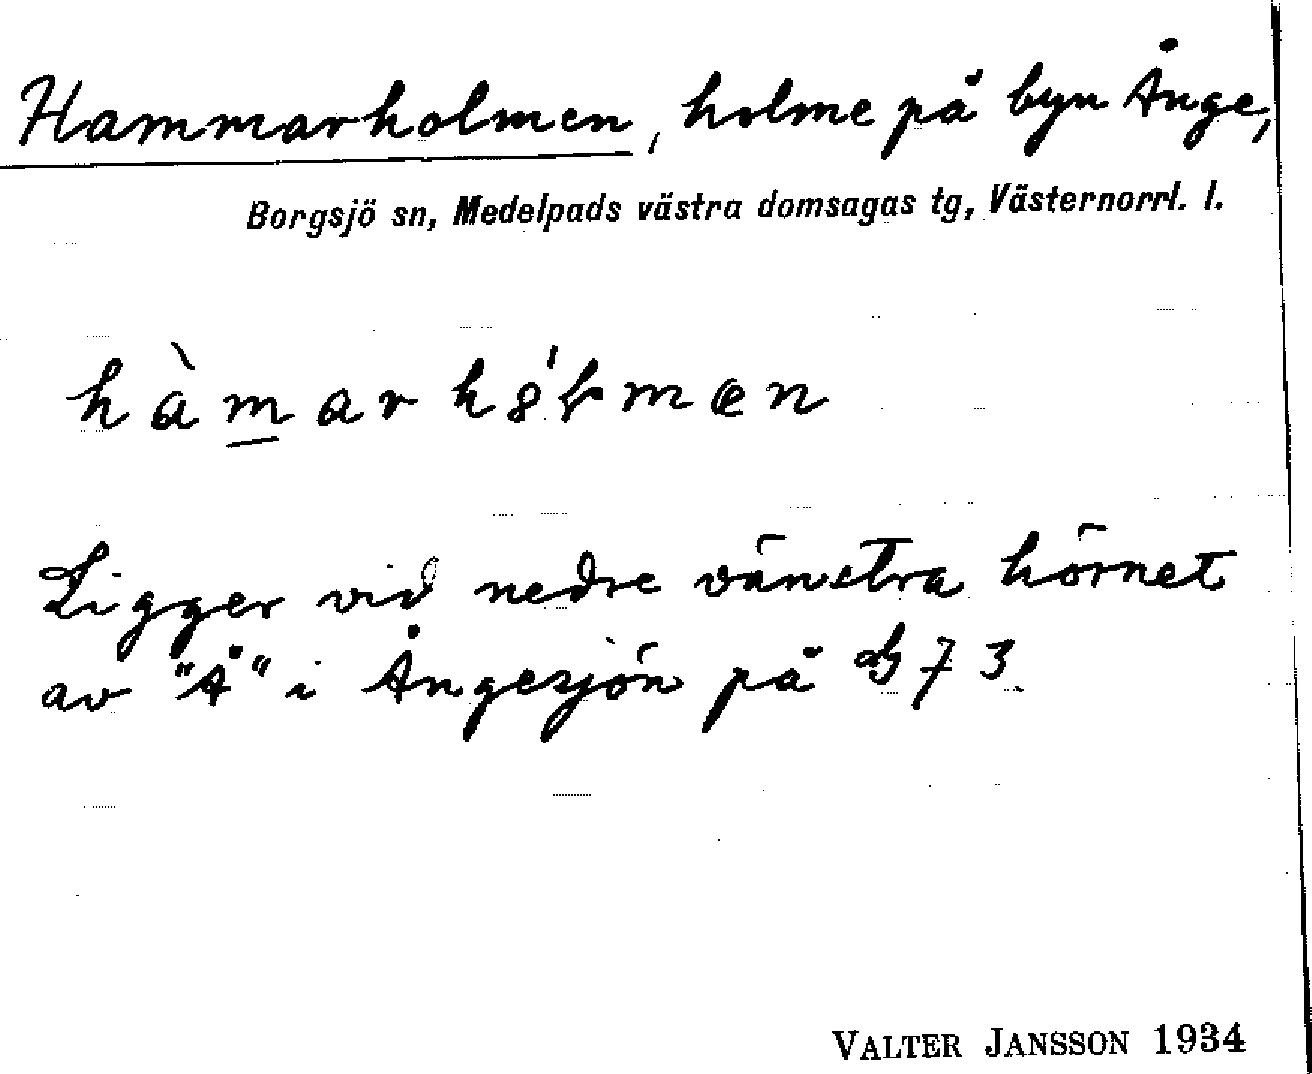 Hammarholmen, holme på byn Ånge,
Borgsjö sn, Medelpads västra domsagas tg, Västernorrl. l.
Ligger vid nedre vänstra hörnet
av "Å" i Ångesjön på 73
VALTER JANSSON 1934